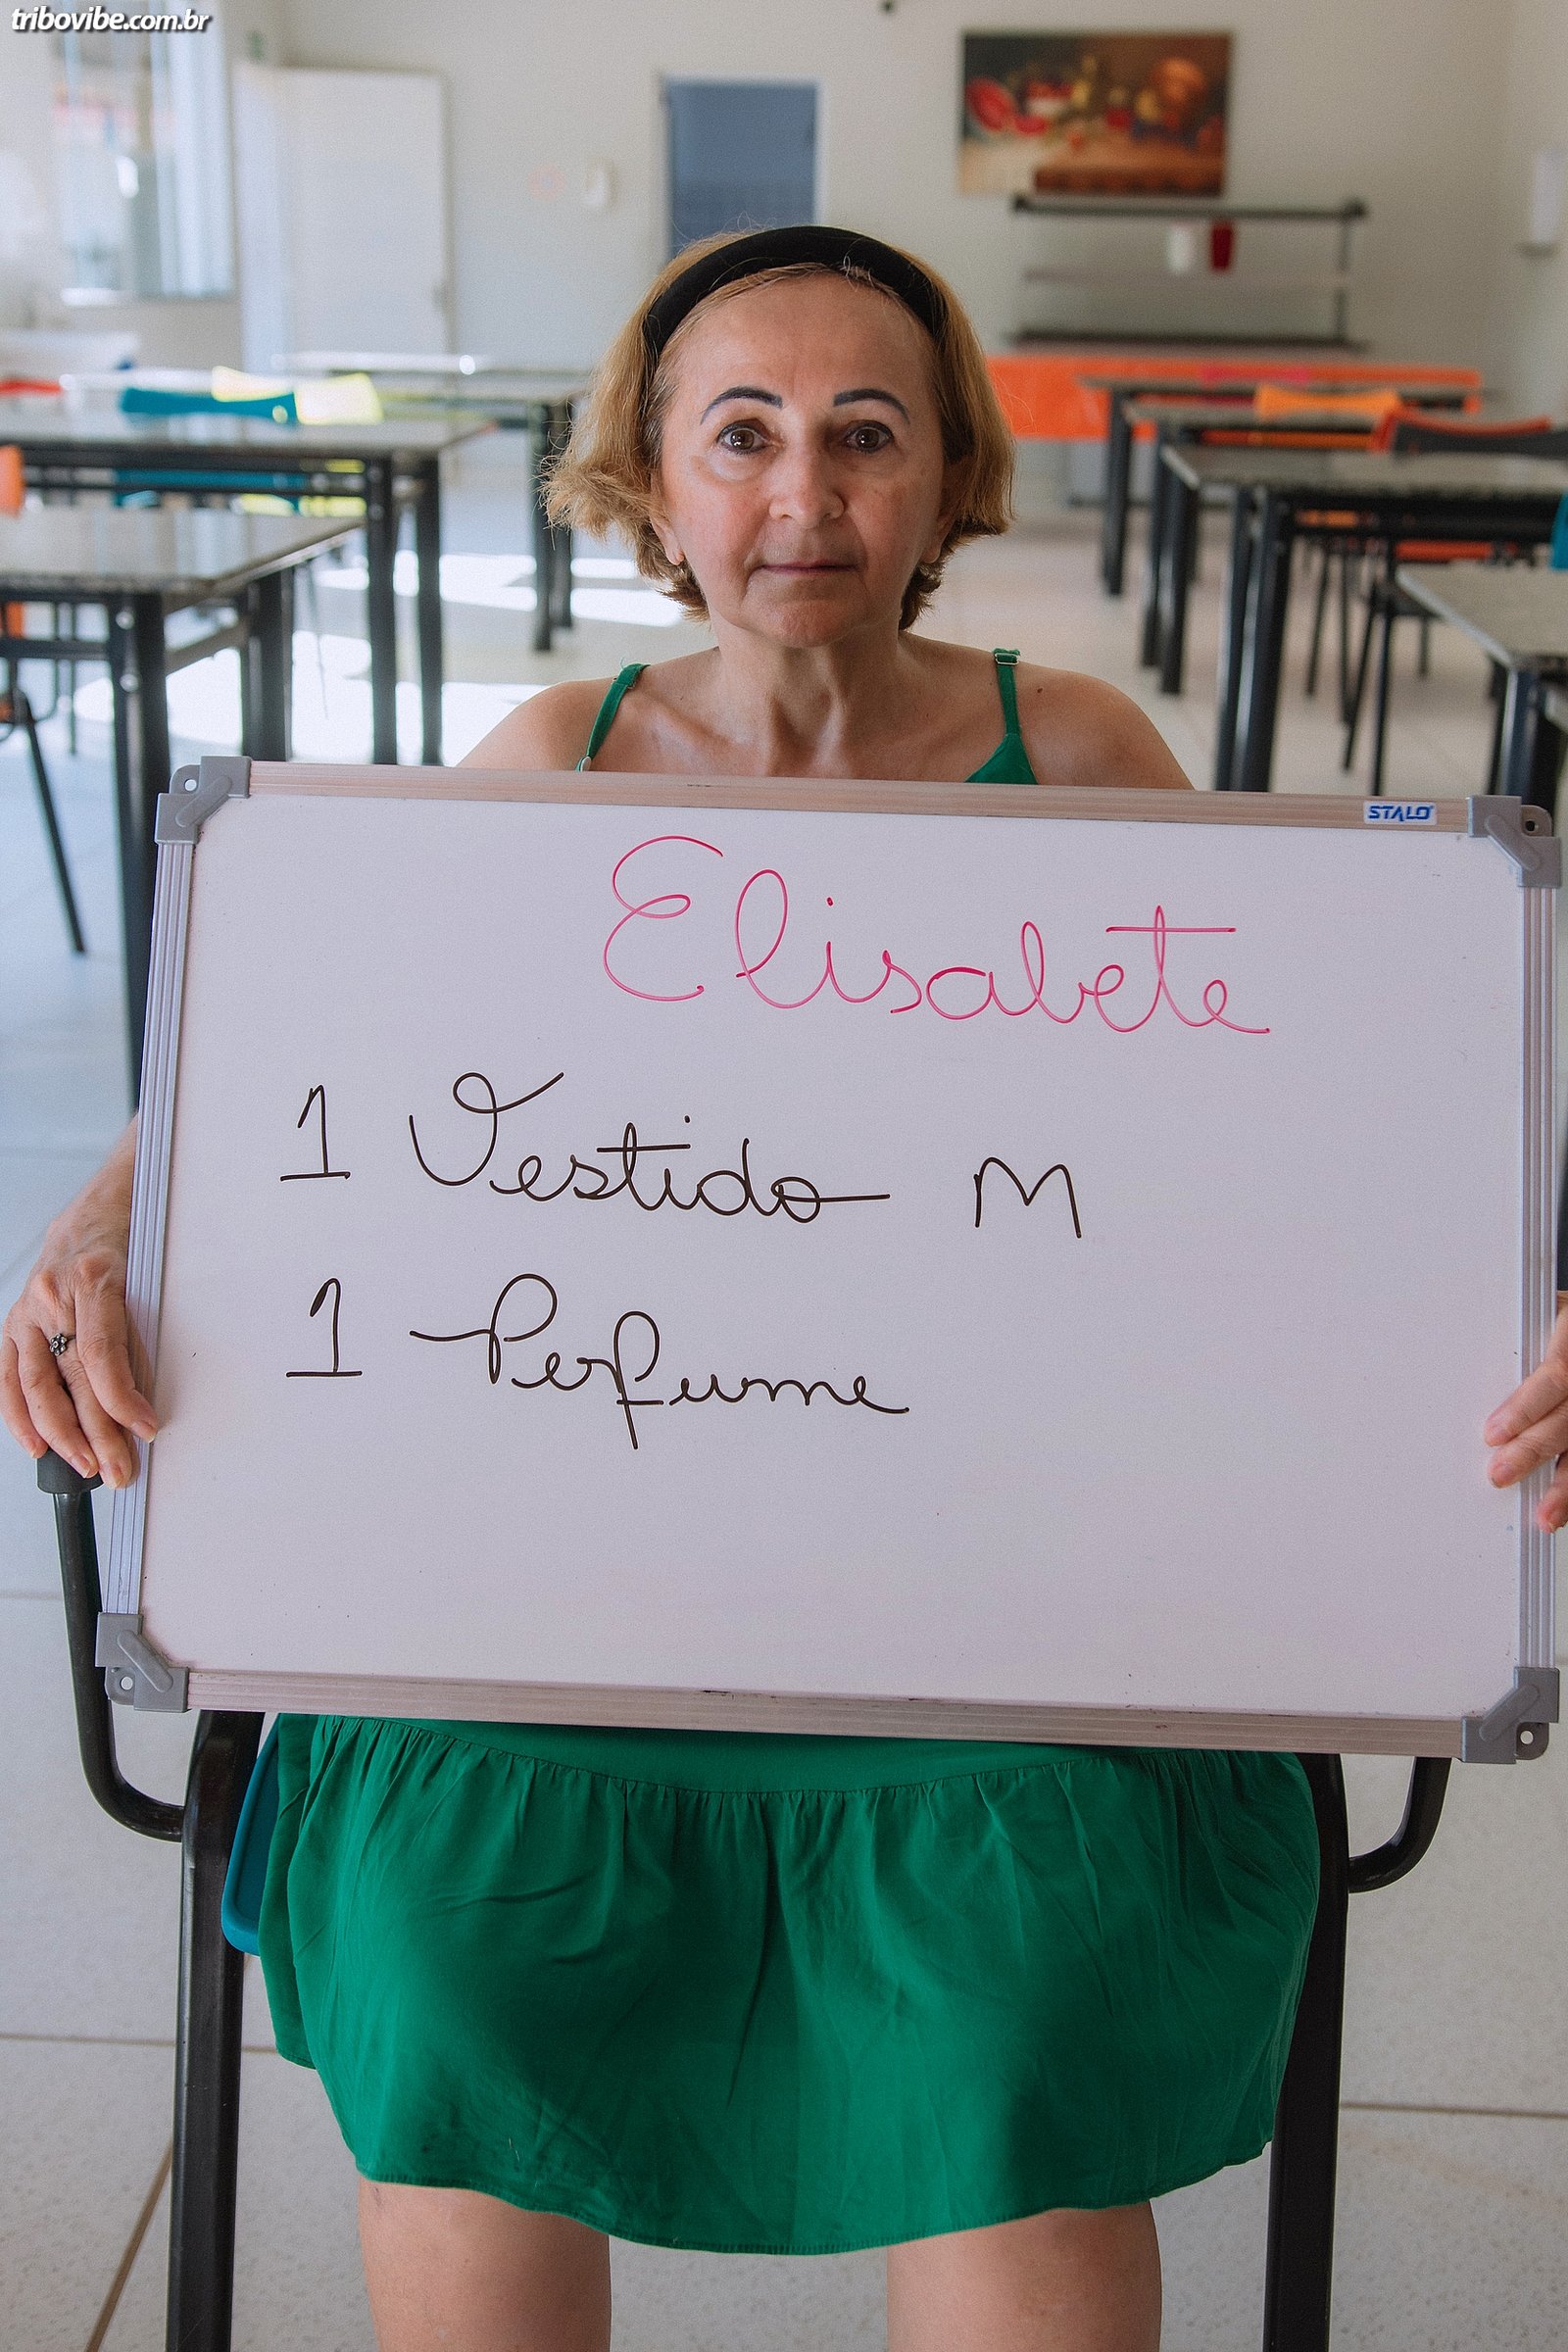 tribovibe.com.br
STALO
Elisabete
1 Vestido M
1 Perfume